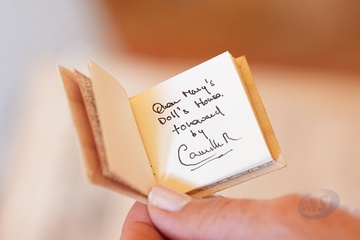 Queen Mary's
Doll's House
foreword
by
Camilla R